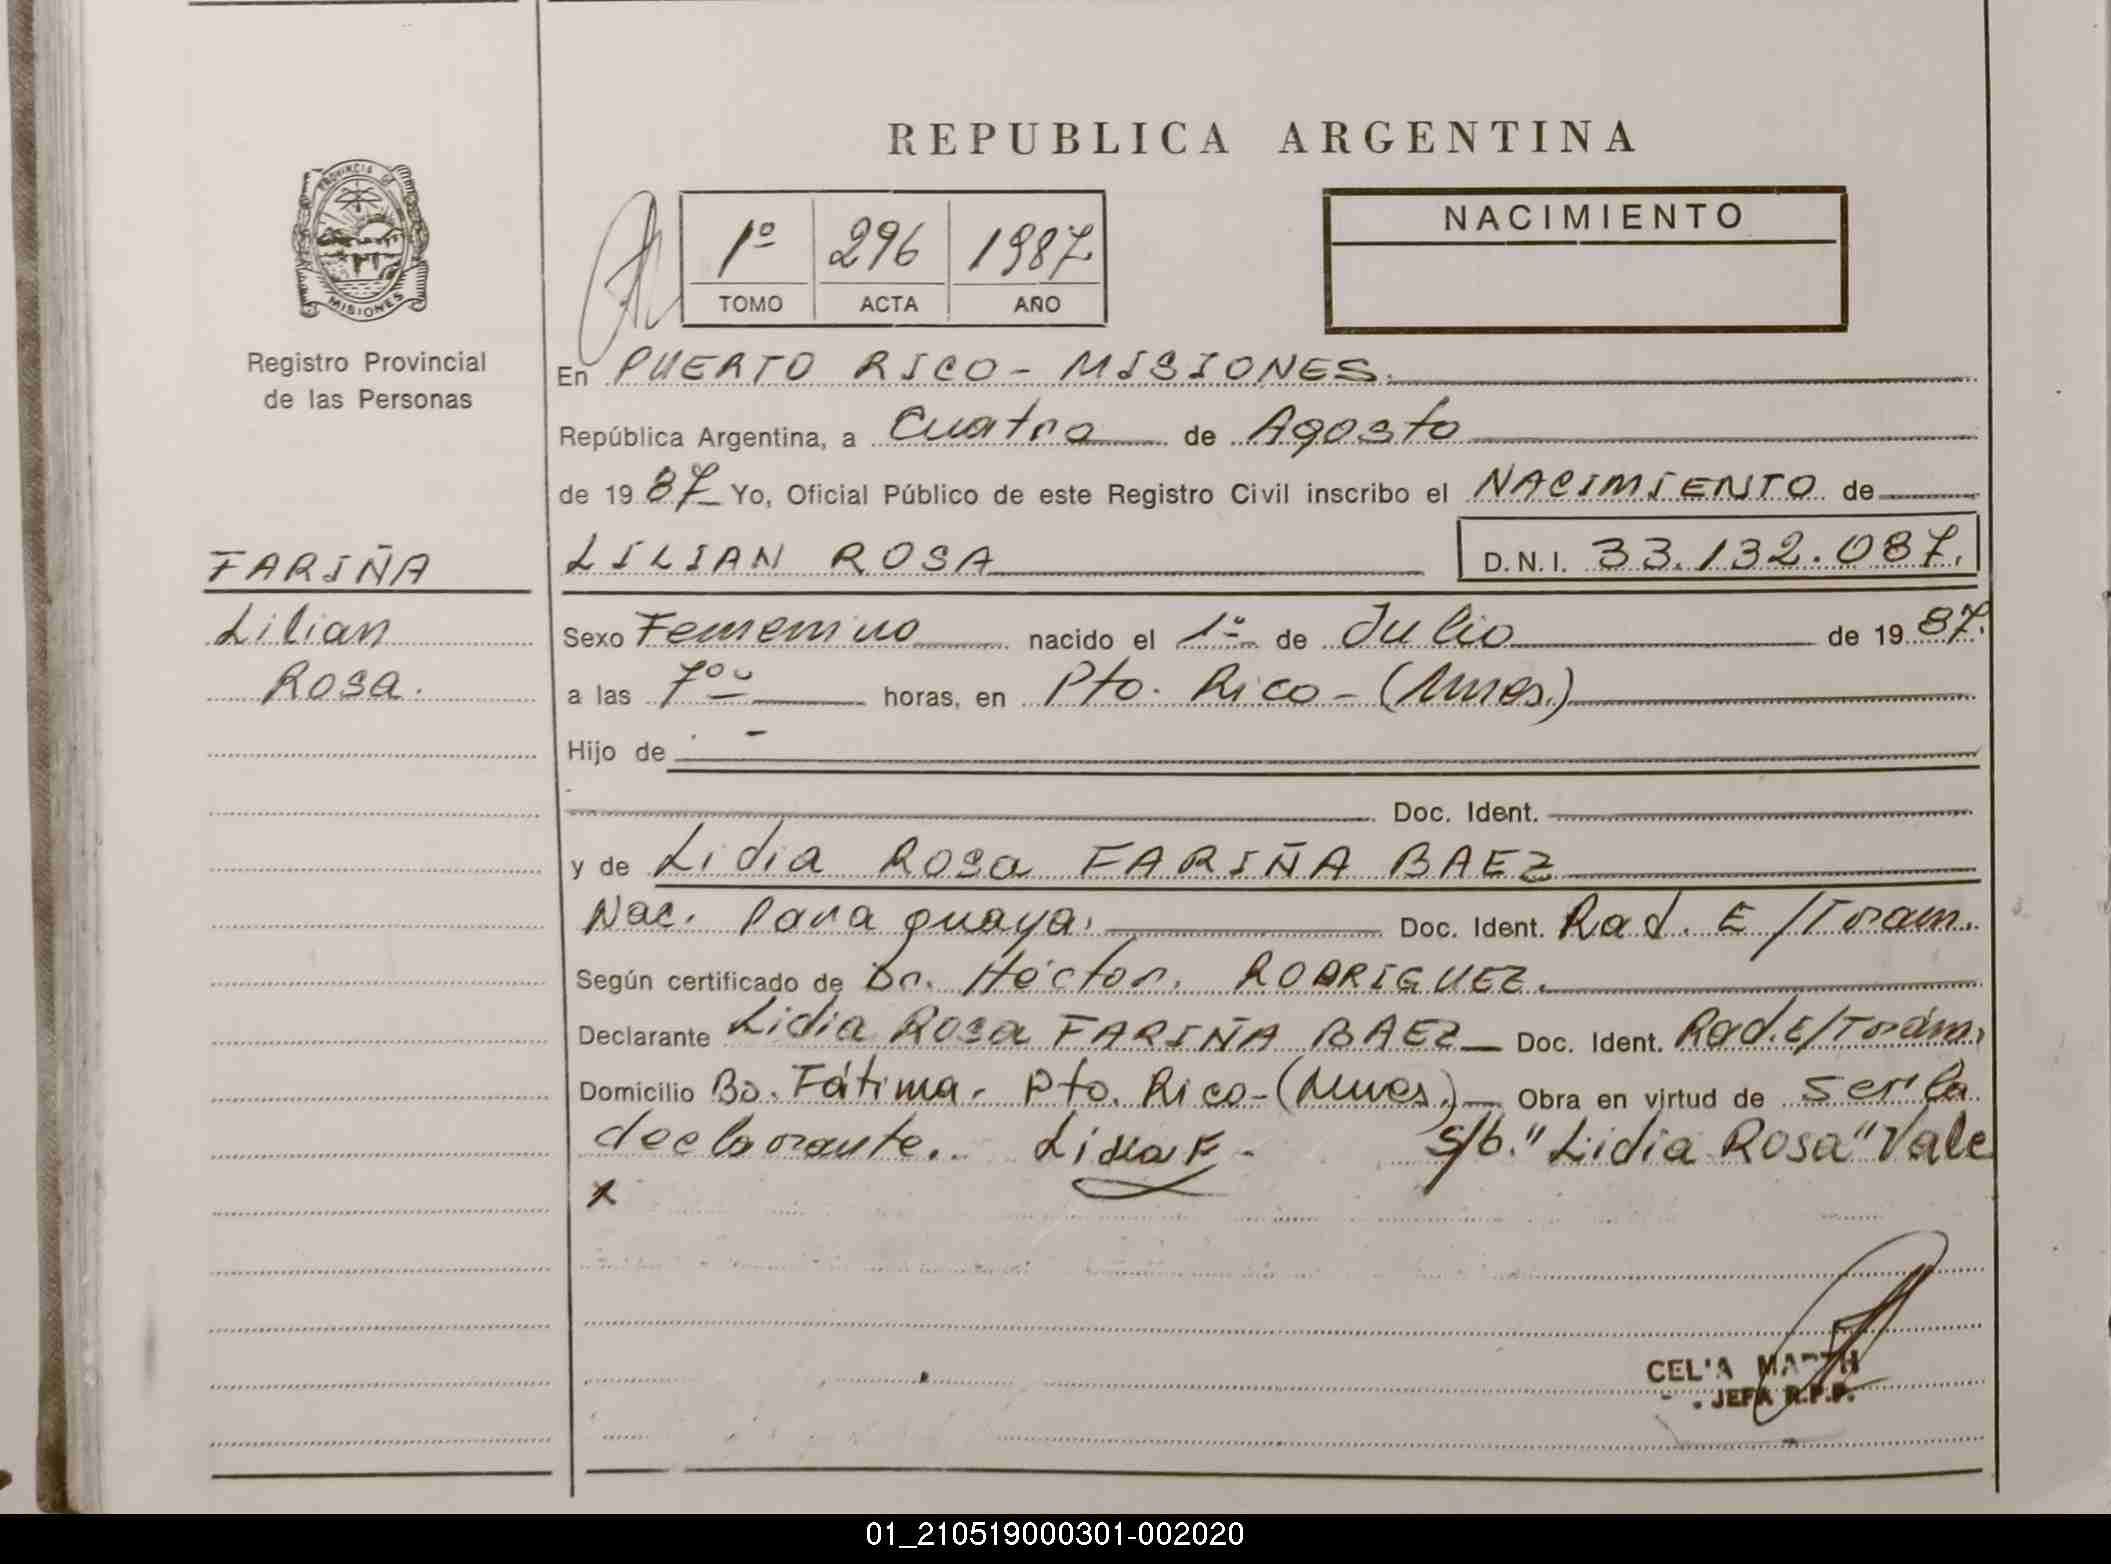 REPUBLICA ARGENTINA
PROVINCIA DE
MISIONES
Registro Provincial
de las Personas
1º 296 1987
TOMO ACTA AÑO
NACIMIENTO
En PUERTO RICO - MISIONES.
República Argentina, a Cuatro de Agosto
de 1987 Yo, Oficial Público de este Registro Civil inscribo el NACIMIENTO de
FARIÑA
Lilian
Rosa.
LILIAN ROSA D.N.I. 33.132.087.
Sexo Femenino nacido el 1º de Julio de 1987.
a las 7ºº horas, en Pto. Rico - (Mnes.)
Hijo de -
Doc. Ident.
y de Lidia Rosa FARIÑA BAEZ
Nac. Paraguaya. Doc. Ident. Rad. E/Tram.
Según certificado de Dr. Héctor. RODRIGUEZ.
Declarante Lidia Rosa FARIÑA BAEZ Doc. Ident. Rad. E/Trám.
Domicilio Bo. Fátima. Pto. Rico - (Mnes.) Obra en virtud de ser la
declarante. S/b. "Lidia Rosa" Vale
x
CELIA MARTH
JEFA R.P.P.
01_210519000301-002020